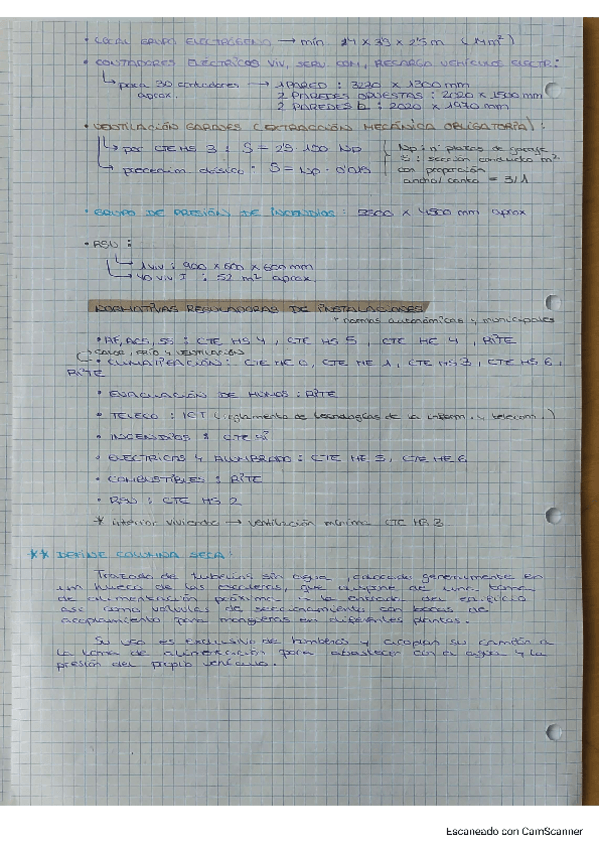 • LOCAL GRUPO ELECTRÓGENO → mín.
• CONTADORES ELÉCTRICOS VIV, SERV. COM, RECARGA VEHÍCULO ELECTR.:
↳ para 30 contadores → 1 PARED : 3230 x 1300 mm
aprox. 2 PAREDES OPUESTAS : 2120 x 1500 mm
2 PAREDES L : 2020 x 1930 mm
• VENTILACIÓN GARAJES (EXTRACCIÓN MECÁNICA OBLIGATORIA) :
↳ por CTE HS 3 : S = 2'5 · 150 Np
↳ procedim. clásico : S = Np · 0'015
Np : nº plazas de garaje
S : sección conducto m²
con proporción
ancho/canto = 3/1
• GRUPO DE PRESIÓN DE INCENDIOS : 3500 x 4500 mm aprox
• RSU :
↳ 1 viv : 900 x 600 x 600 mm
↳ 40 viv : 52 m² aprox.
NORMATIVAS REGULADORAS DE INSTALACIONES
* normas autonómicas y municipales
• AF, ACS, SS : CTE HS 4 , CTE HS 5 , CTE HE 4 , RITE
calor, frío y ventilación
• CLIMATIZACIÓN : CTE HE 0, CTE HE 1, CTE HS 3, CTE HS 6,
RITE
• EVACUACIÓN DE HUMOS : RITE
• TELECO : ICT (reglamento de tecnologías de la inform. y telecom.)
• INCENDIOS : CTE
• ELÉCTRICAS Y ALUMBRADO : CTE HE 3, CTE HE 6
• COMBUSTIBLES : RITE
• RSU : CTE HS 2
* interior vivienda → ventilación mínima CTE HS 3
** DEFINE COLUMNA SECA :
Trazado de tuberías sin agua, colocada generalmente en
un hueco de las escaleras, que dispone de una toma
de alimentación próxima a la entrada del edificio
así como válvulas de seccionamiento con bocas de
acoplamiento para mangueras en diferentes plantas.
Su uso es exclusivo de bomberos y acoplan su camión a
la toma de alimentación para abastecer con el agua y la
presión del propio vehículo.
Escaneado con CamScanner